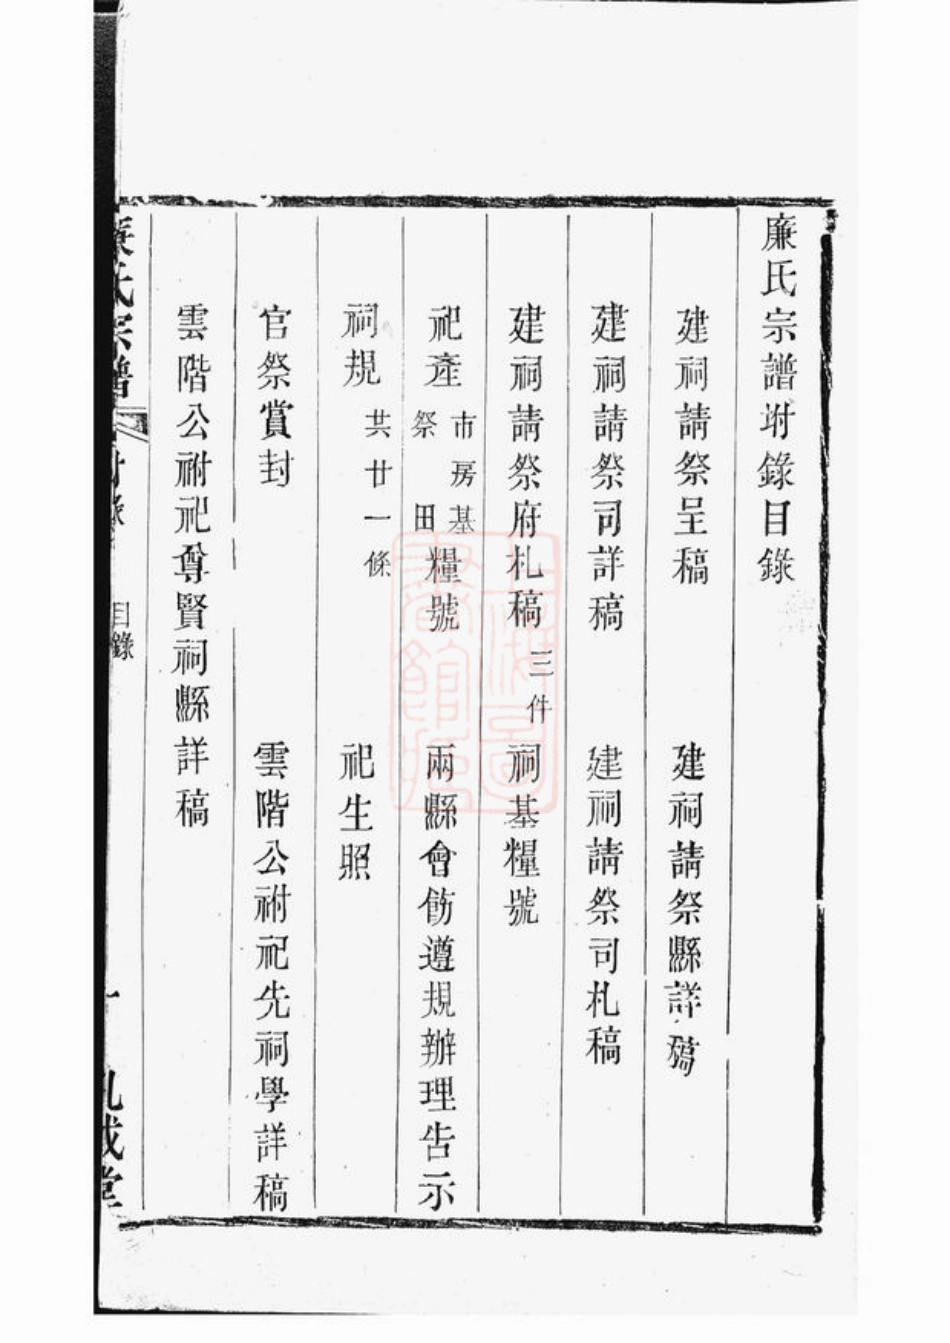 廉氏宗譜坿錄目錄
建祠請祭呈稿　建祠請祭縣詳稿
建祠請祭司詳稿　建祠請祭司札稿
建祠請祭府札稿三件　祠基糧號
祀產市房基祭田糧號　兩縣會飭遵規辦理告示
祠規共廿一條　祀生照
官祭賞封　雲階公祔祀先祠學詳稿
雲階公祔祀尊賢祠縣詳稿
廉氏宗譜
目錄